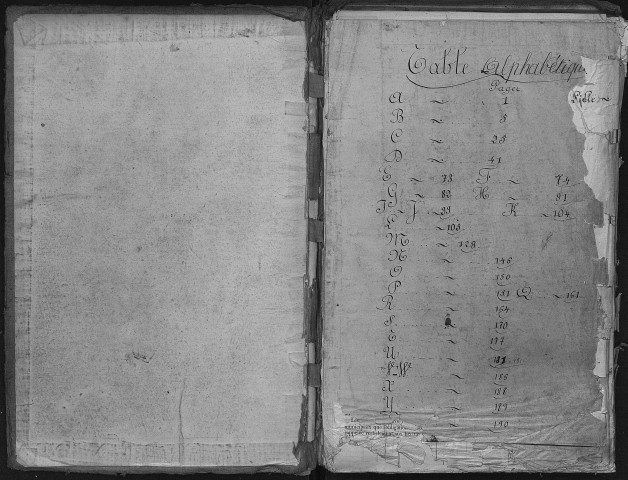 Table Alphabétique
Pages
A ~ 1
B ~ 5
C ~ 25
D ~ 41
E ~ 73 F ~ 74
G ~ 82 H ~ 91
I J ~ 99 K ~ 104
L ~ 105
M ~ 128
N ~ 146
O ~ 150
P ~ 151 Q ~ 161
R ~ 164
S ~ 170
T ~ 177
U ~
V-W ~ 186
X ~ 188
Y ~ 189
~ 190